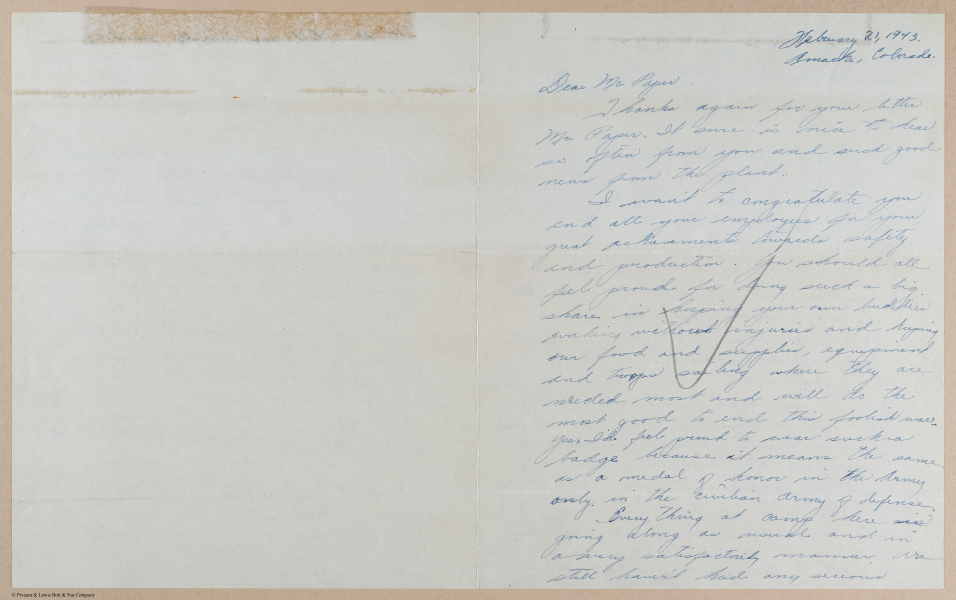 February 21, 1943.
Amache, Colorado.
Dear Mr. Paper.
Thanks again for your letter
Mr. Paper. It sure is nice to hear
so often from you and such good
news from the plant.
I want to congratulate you
and all your employees for your
great achievements towards safety
and production. You should all
feel proud for doing such a big
share in keeping your own buddies
working without injuries and keeping
our food and supplies, equipment
and troops sailing where they are
needed most and will do the
most good to end this foolish war.
Yes, I'd feel proud to wear such a
badge because it means the same
as a medal of honor in the Army
only in the civilian army of defense.
Everything at camp here is
going along as usual and in
a very satisfactorily manner. We
still haven't had any serious
© Fraxon & Lewis Bolt & Nut Company